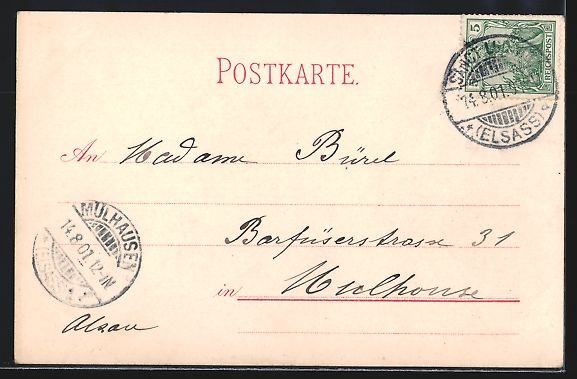 5
REICHSPOST
SANCT
14.8.01.
* (ELSASS) *
POSTKARTE.
An Madame Bürel
MÜLHAUSEN
14.8.01.12-1N
Barfüserstrasse 31
in Mulhouse